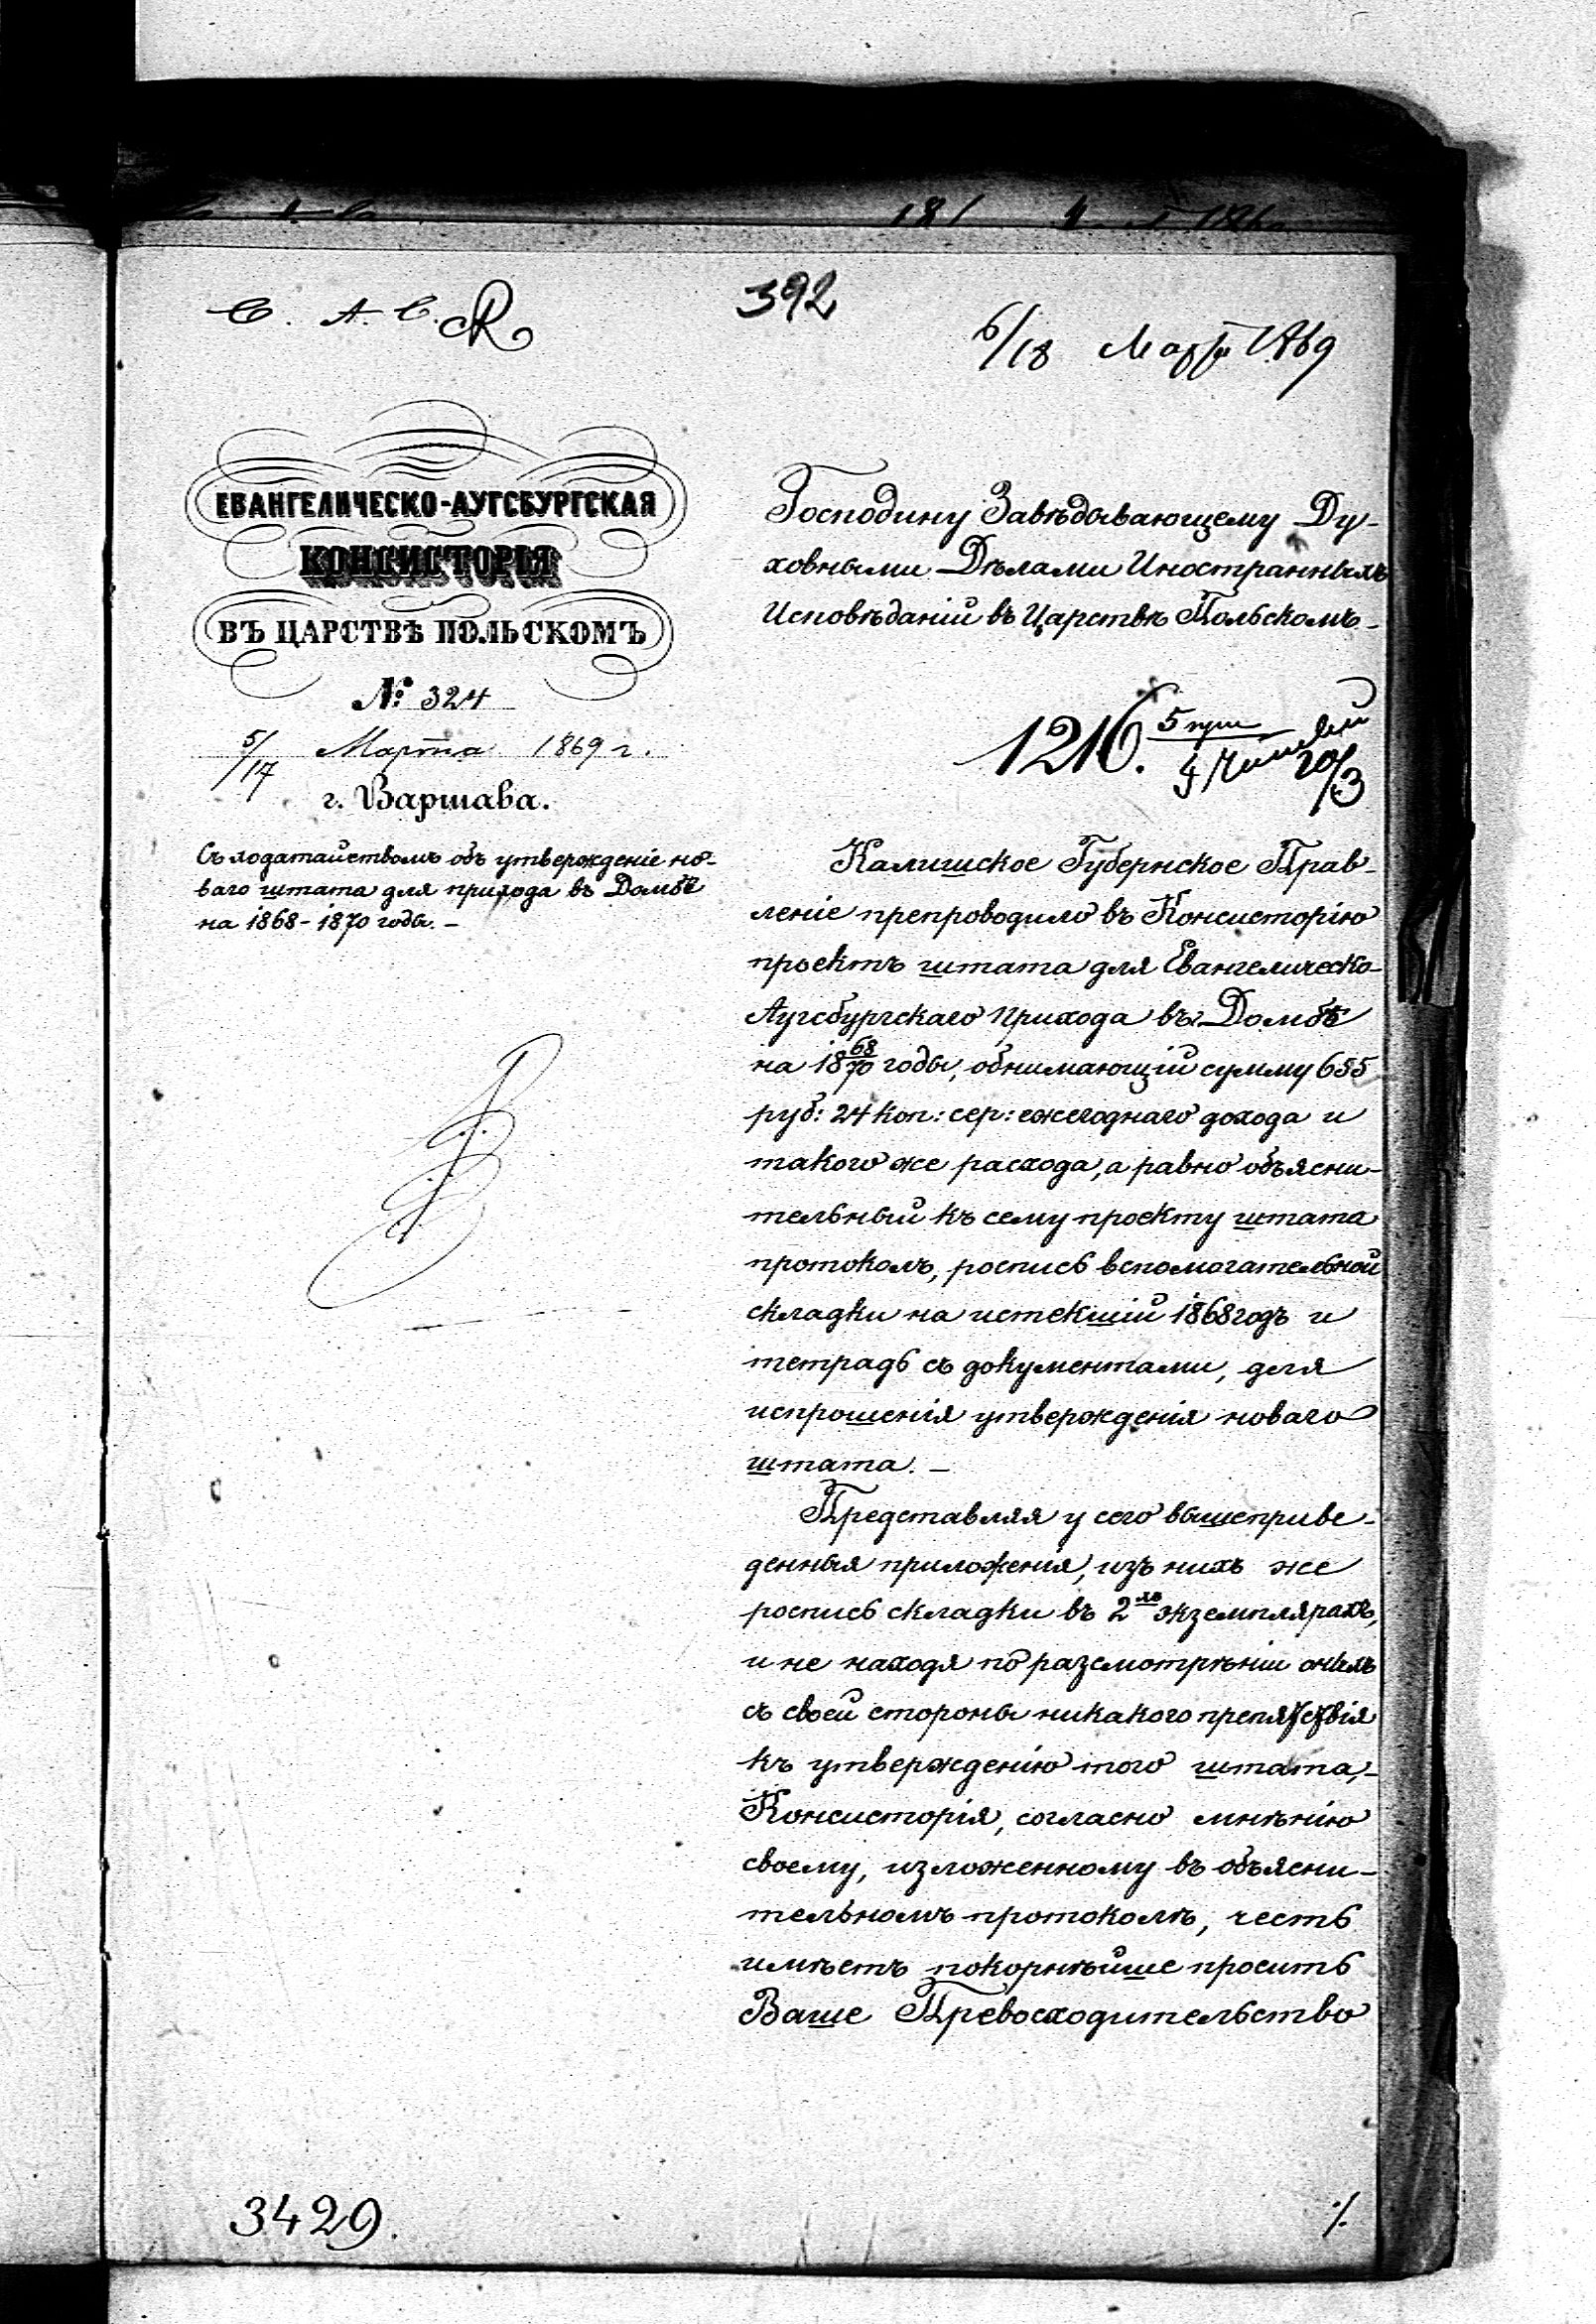 392
6/18 Марта 1869
ЕВАНГЕЛИЧЕСКО-АУГСБУРГСКАЯ
КОНСИСТОРІЯ
ВЪ ЦАРСТВѢ ПОЛЬСКОМЪ
№ 324
5/17 Марта 1869 г.
г. Варшава.
Съ ходатайствомъ объ утвержденіе но-
ваго штата для прихода въ Домбѣ
на 1868-1870 годы. –
Господину Завѣдывающему Ду-
ховными Дѣлами Иностранныхъ
Исповѣданій въ Царствѣ Польскомъ. –
1216. 5
4
20/3
Калишское Губернское Прав-
леніе препроводило въ Консисторію
проектъ штата для Евангелическо-
Аугсбургскаго Прихода въ Домбѣ
на 18 68/70 годы, обнимающій сумму 655
руб: 24 коп: сер: ежегоднаго дохода и
такого же расхода, а равно объясни-
тельный къ сему проекту штата
протоколъ, роспись вспомогательной
складки на истекшій 1868 годъ и
тетрадь съ документами, для
испрошенія утвержденія новаго
штата. –
Представляя у сего вышеприве-
денныя приложенія, изъ нихъ же
роспись складки въ 2хъ экземплярахъ,
и не находя по разсмотрѣніи оныхъ
съ своей стороны никакого препятствія
къ утвержденію того штата, –
Консисторія, согласно мнѣнію
своему, изложенному въ объясни-
тельномъ протоколѣ, честь
имѣетъ покорнѣйше просить
Ваше Превосходительство
3429.
·/.